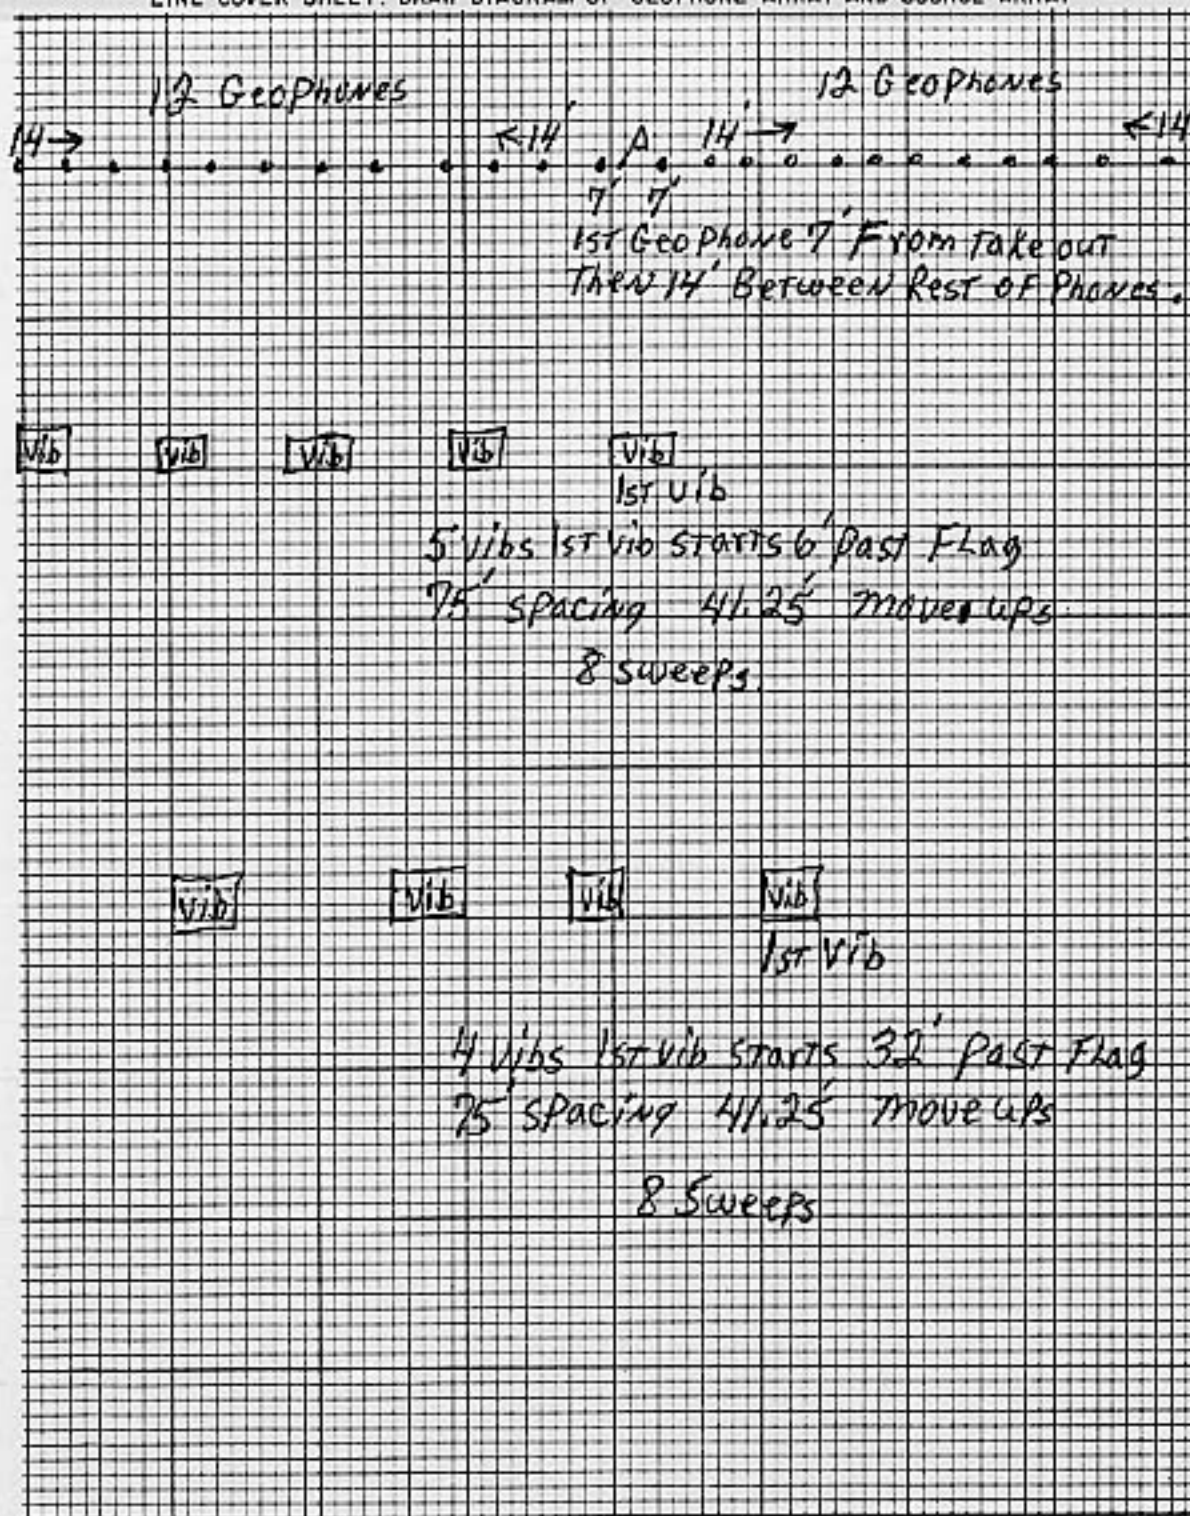 LINE COVER SHEET: DRAW DIAGRAM OF GEOPHONE ARRAY AND SOURCE ARRAY
12 GeoPhones 12 GeoPhones
14' → ←14' A 14' → ←14
7' 7'
1ST GeoPhone 7' From Take out
Then 14' Between Rest OF Phones.
Vib Vib Vib Vib Vib
1ST Vib
5 Vibs 1ST Vib STarTs 6' Past FLag
75' SPacing 41.25' move ups
8 sweeps.
Vib Vib Vib Vib
1ST Vib
4 Vibs 1ST Vib STarTs 32' Past FLag
75' SPacing 41.25' move ups
8 Sweeps